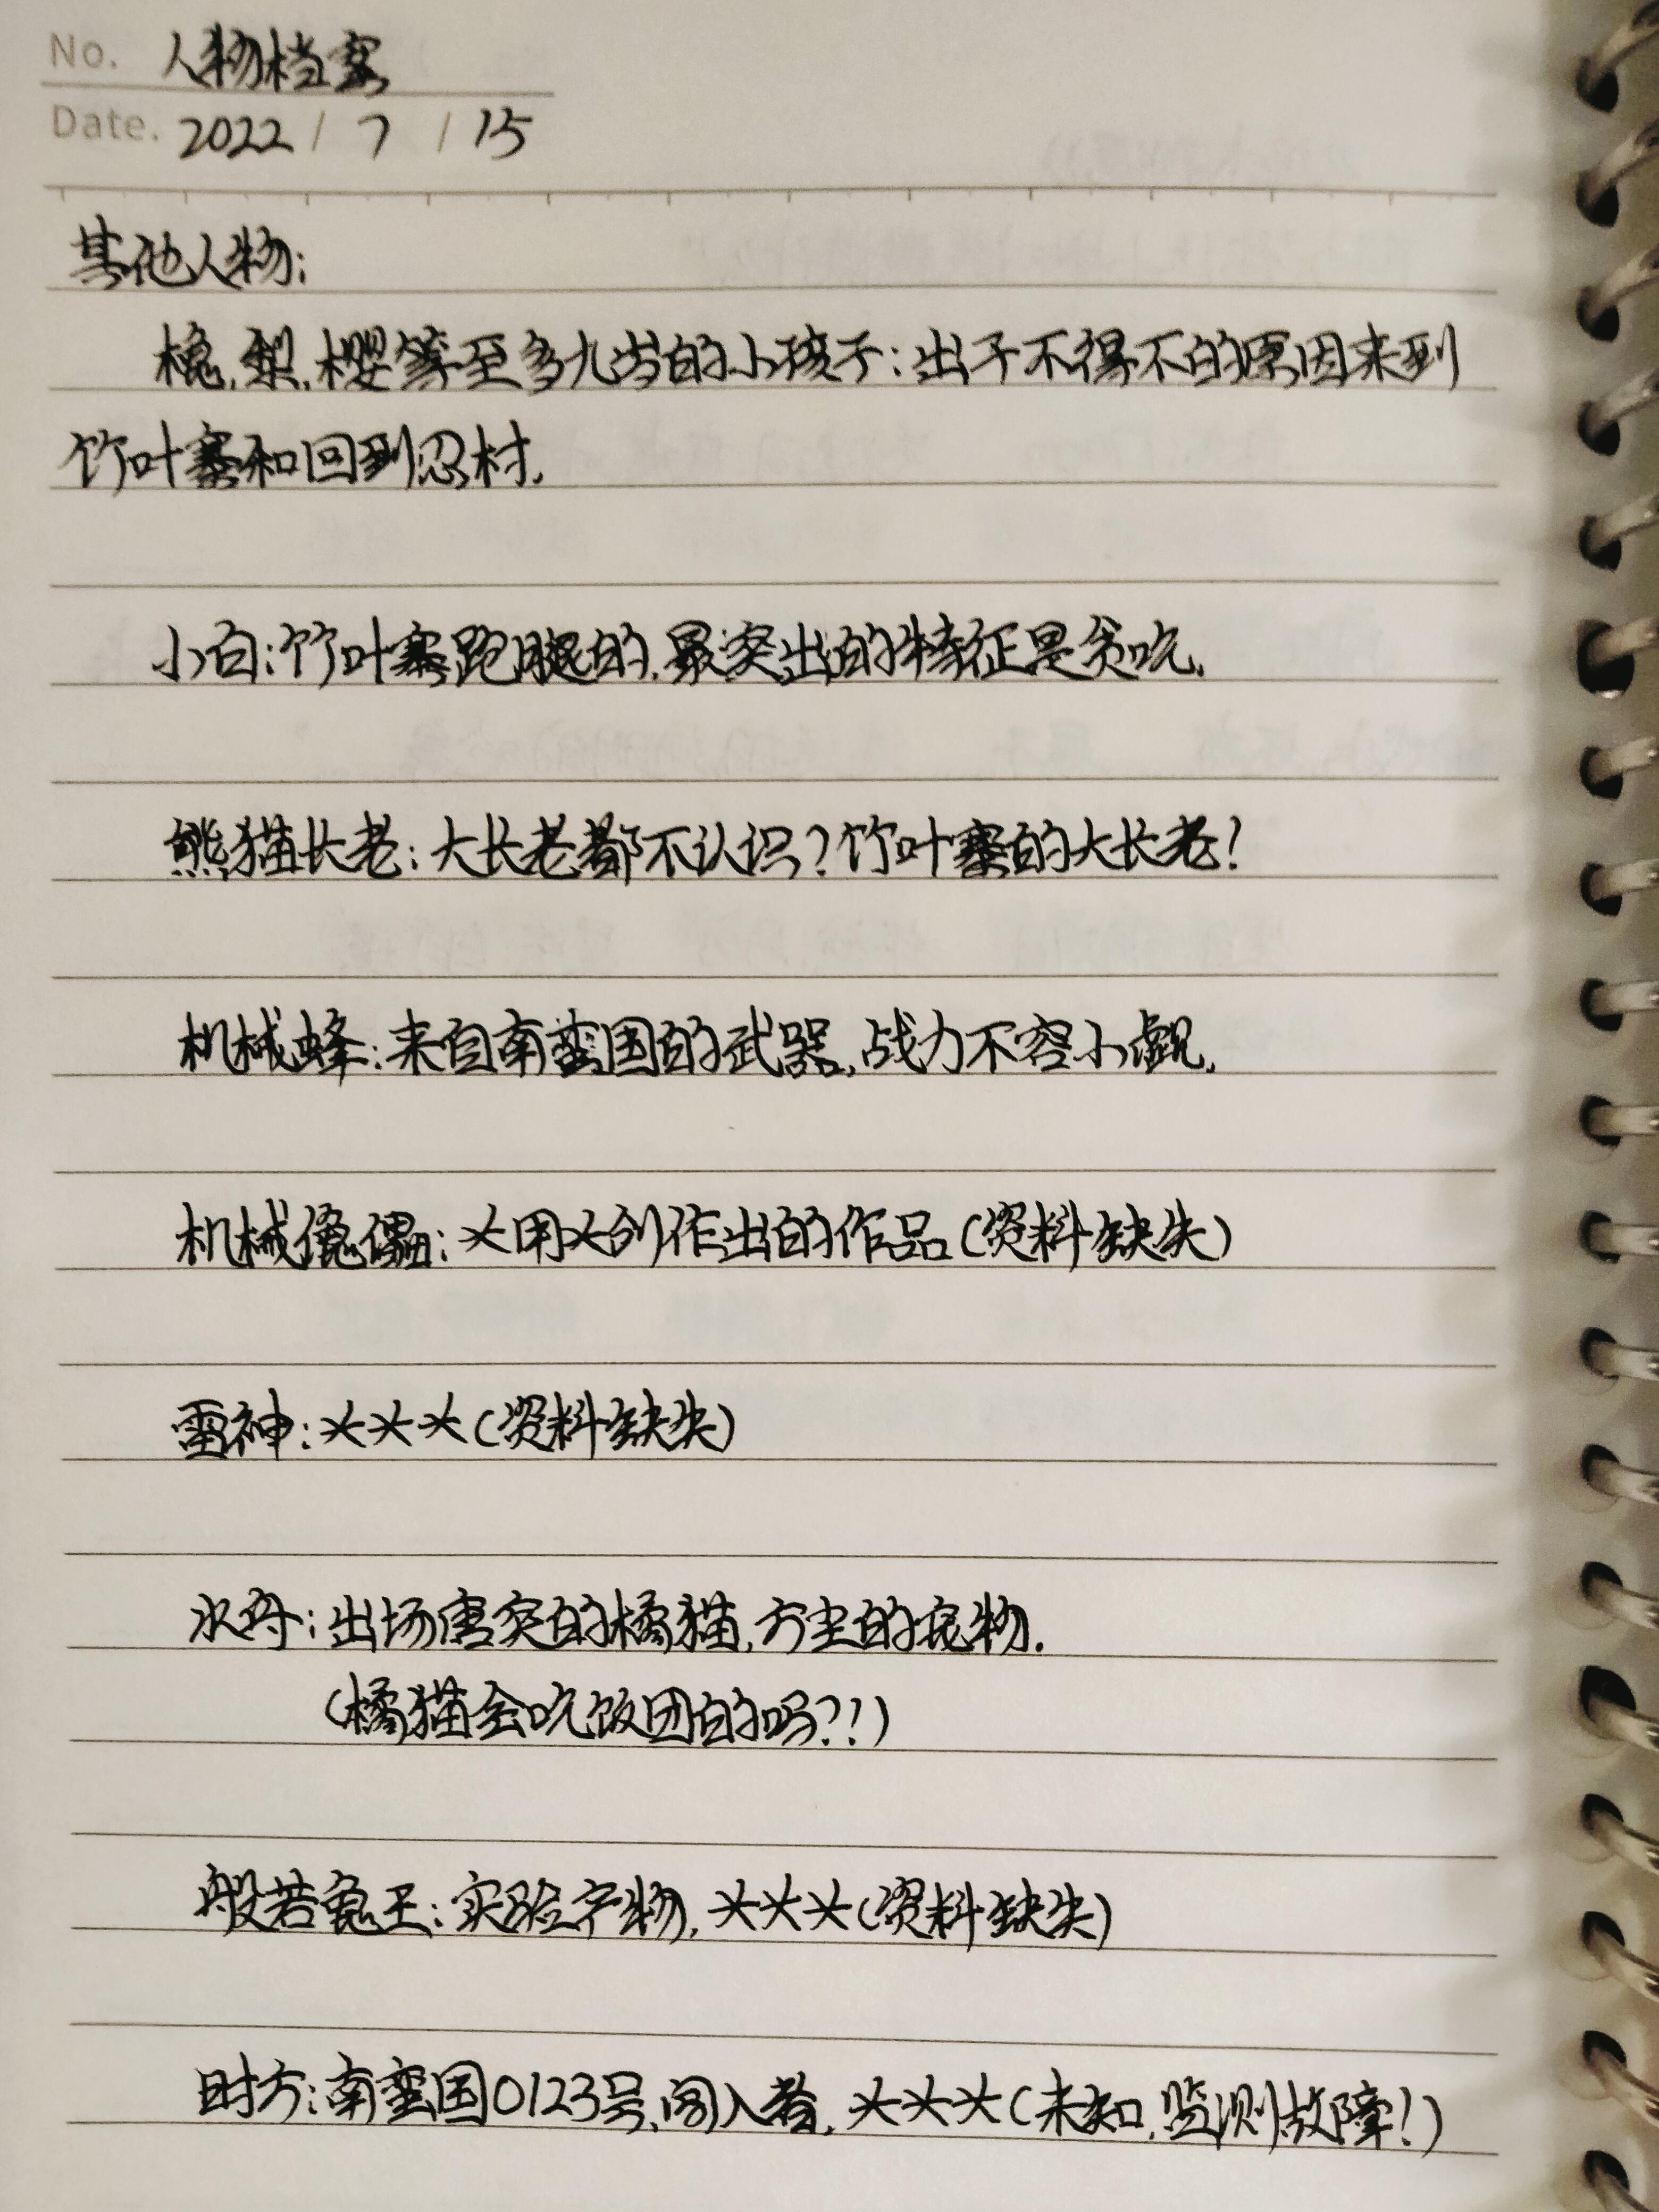 No. 人物档案
Date. 2022 / 7 / 15
其他人物:
槐,梨,樱等至多九岁的小孩子:出于不得不的原因来到
竹叶寨和回到忍村.
小白:竹叶寨跑腿的.最突出的特征是贪吃.
熊猫长老:大长老都不认识?竹叶寨的大长老!
机械蜂:来自南蛮国的武器,战力不容小觑.
机械傀儡:☆用☆创作出的作品(资料缺失)
雷神:☆☆☆(资料缺失)
水丹:出场唐突的橘猫,方尘的宠物.
(橘猫会吃饭团的吗?!)
般若鬼王:实验产物,☆☆☆(资料缺失)
时方:南蛮国0123号,闯入者,☆☆☆(未知,监测故障!)